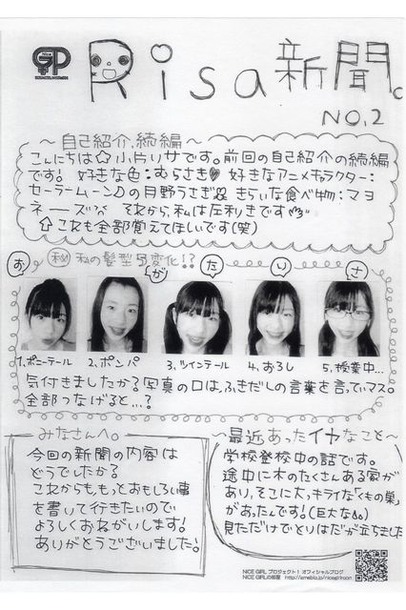 GP
Risa新聞。
NO.2
〜自己紹介、続編〜
こんにちは☆小片リサです。前回の自己紹介の続編
です! 好きな色:むらさき♥ 好きなアニメキャラクター:
セーラームーン♪の月野うさぎ きらいな食べ物:マヨ
ネーズ それから、私は左利きです
⇧これも全部覚えてほしいです(笑)
お ㊙私の髪型5変化!? が た り さ
1,ポニーテール 2,ポンパ 3,ツインテール 4,おろし 5,授業中…
気付きましたか?写真の口は、ふきだしの言葉を言っていマス。
全部つなげると…?
みなさんへ。
今回の新聞の内容は
どうでしたか?
これからも、もっとおもしろい事
を書いて行きたいので
よろしくおねがいします!
ありがとうございました!
〜最近あったイヤなこと〜
学校登校中の話です。
途中に木のたくさんある家が
あり、そこに大キライな「くもの巣」
があったんです!(巨大な)
見ただけでとりはだが立ちました
NICE GIRL プロジェクト! オフィシャルブログ
NICE GIRLの部屋 http://ameblo.jp/nicegirlroom